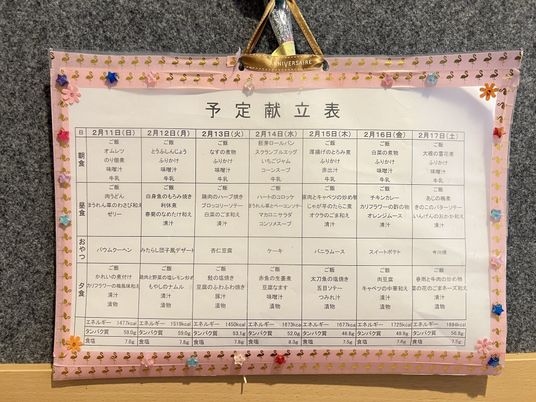 NIVERSAIRE
予定献立表
日 2月11日(日) 2月12日(月) 2月13日(火) 2月14日(水) 2月15日(木) 2月16日(金) 2月17日(土)
朝食
ご飯 ご飯 ご飯 胚芽ロールパン ご飯 ご飯 ご飯
オムレツ とうふしんじょう なすの煮物 スクランブルエッグ 厚揚げのとろみ煮 白菜の煮物 大根の含花煮
のり佃煮 ふりかけ ふりかけ いちごジャム ふりかけ ふりかけ ふりかけ
味噌汁 味噌汁 味噌汁 コーンスープ 味噌汁 味噌汁
牛乳 牛乳 牛乳 牛乳 牛乳 牛乳 牛乳
昼食
肉うどん 白身魚のもろみ焼き 鶏肉のハーブ焼き ハートのコロッケ 豚肉とキャベツの炒め物 チキンカレー あじの梅煮
ほうれん草のわさび和え 利休煮 ブロッコリーソテー ほうれん草とベーコンソテー じゃが芋のたらこ煮 カリフラワーの酢の物 きのこのバターソテー
ゼリー 春菊のなめたけ和え 白菜のごま和え マカロニサラダ オクラのごま和え オレンジムース いんげんのおかか和え
漬汁 漬汁 コンソメスープ 漬汁 漬汁
おやつ
バウムクーヘン みたらし団子風デザート 杏仁豆腐 ケーキ バニラムース スイートポテト 今川焼
夕食
ご飯 ご飯 ご飯 ご飯 ご飯 ご飯 ご飯
かれいの煮付け 鶏肉と野菜の塩レモン炒め 鮭の塩焼き 赤魚の生姜煮 太刀魚の塩焼き 肉豆腐 春雨と牛肉の炒め物
カリフラワーの梅風味和え もやしのナムル 豆腐のふわふわ焼き 豆腐なます 五目ソテー キャベツの中華和え 菜の花のごまネーズ和え
漬汁 漬汁 豚汁 味噌汁 つみれ汁 漬汁 漬汁
漬物 漬物 漬物 漬物 漬物 漬物 漬物
エネルギー 1477kcal エネルギー 1519kcal エネルギー 1450kcal エネルギー 1673kcal エネルギー 1677kcal エネルギー 1725kcal エネルギー 1884kcal
タンパク質 58.0g タンパク質 59.0g タンパク質 53.1g タンパク質 52.0g タンパク質 46.8g タンパク質 49.9g タンパク質 56.8g
食塩 7.8g 食塩 7.8g 食塩 7.6g 食塩 8.3g 食塩 7.5g 食塩 7.6g 食塩 7.8g